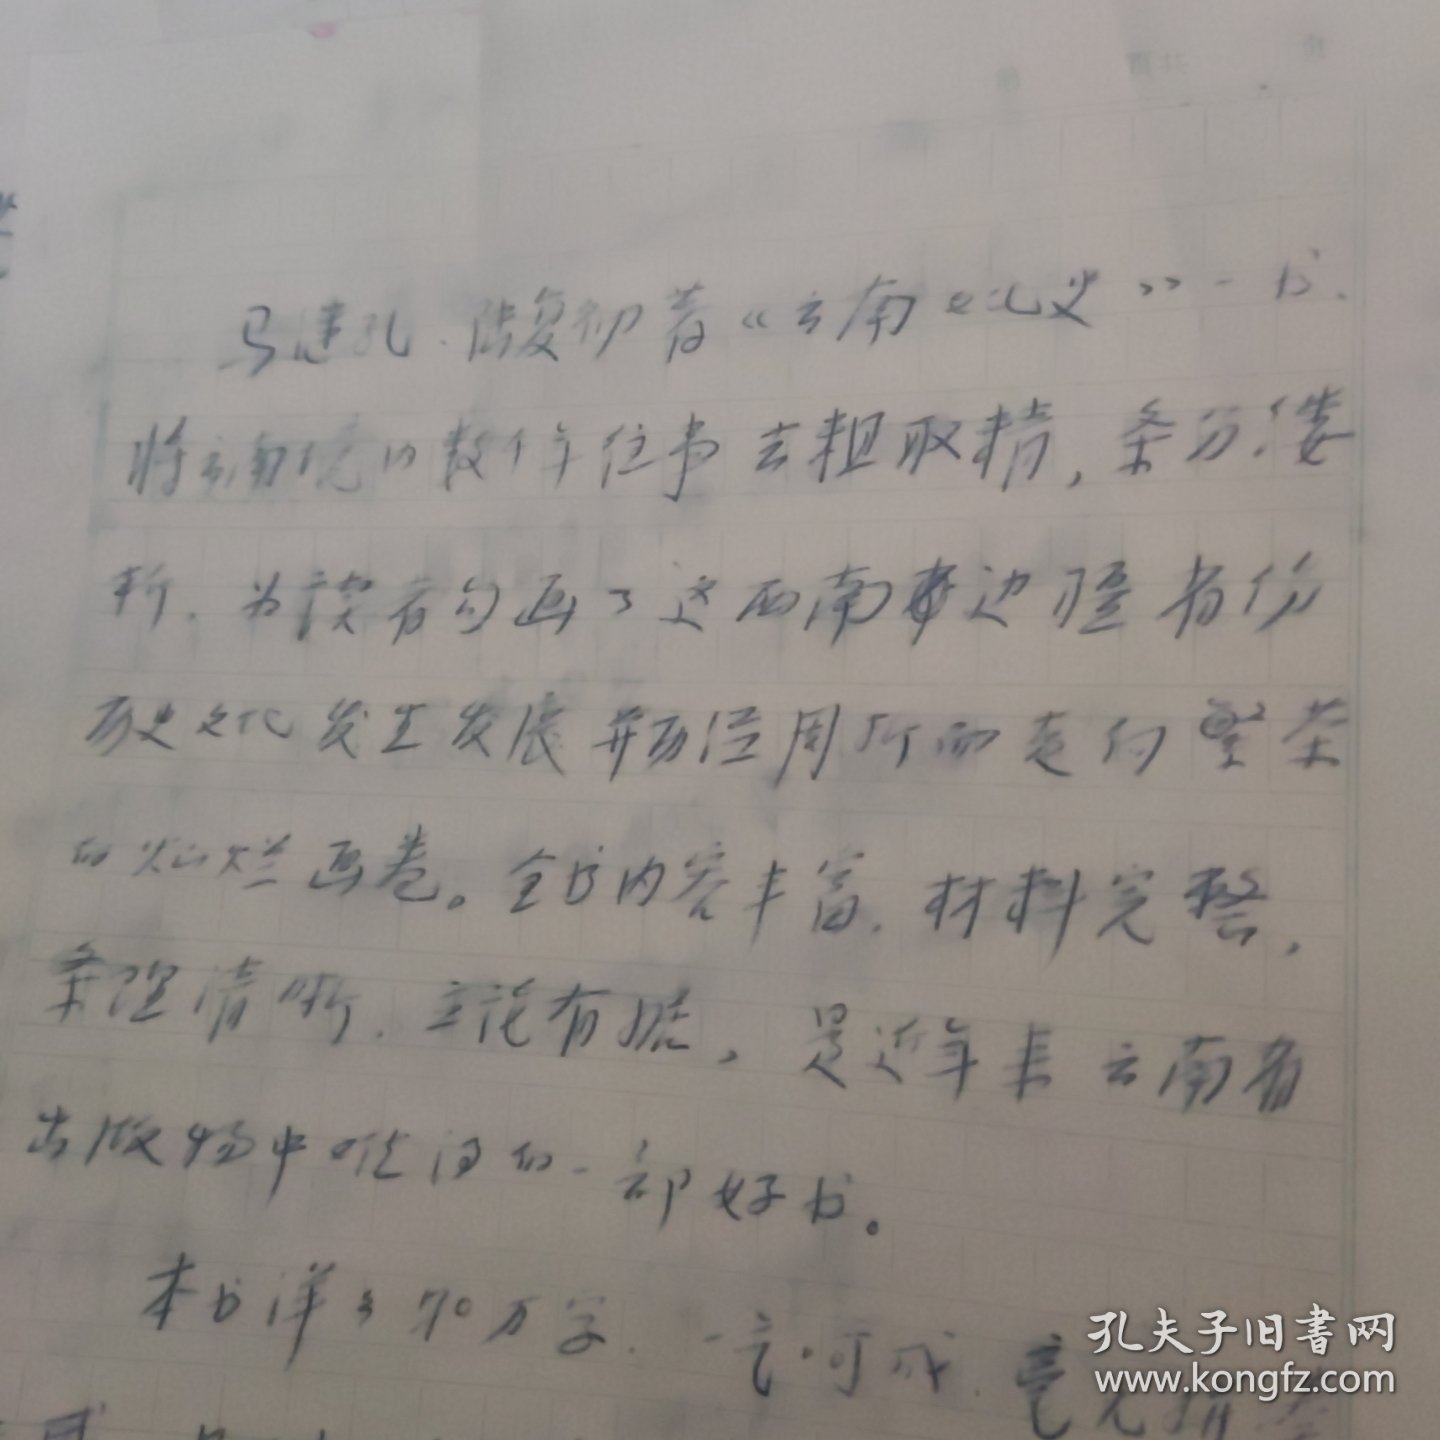 马建孔、陆复初著《云南文化史》一书.
将云南境内数千年往事去粗取精，条分缕
析、为读者勾画了这西南边疆省份
历史文化发生发展并历经周折而走向繁荣
的灿烂画卷。全书内容丰富、材料完整，
条理清晰、立说有据，是近年来云南省
出版物中的一部好书。
本书洋々70万字、一气呵成、毫无
孔夫子旧书网
www.kongfz.com